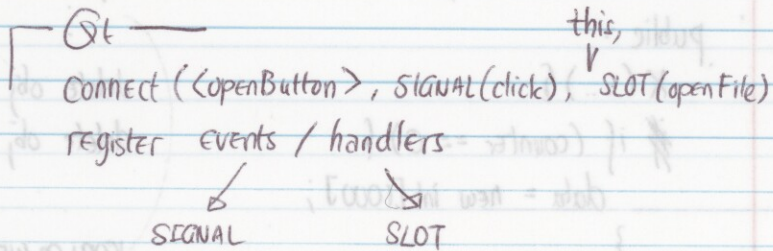 Qt
this,
connect (<openButton>, SIGNAL(click), SLOT(openFile)
register events / handlers
SIGNAL SLOT